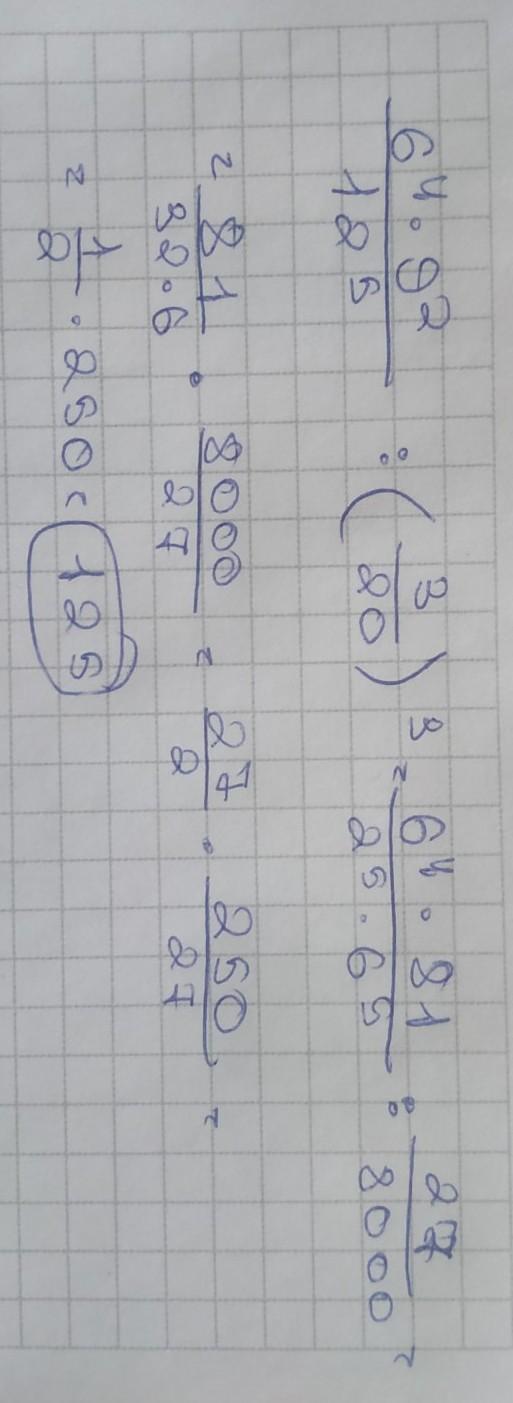 \frac{64 \cdot 9^2}{125} : \left(\frac{3}{20}\right)^3 = \frac{64 \cdot 81}{25 \cdot 65} : \frac{27}{8000} =
= \frac{81}{32 \cdot 6} \cdot \frac{8000}{27} = \frac{27}{2} \cdot \frac{250}{27} =
= \frac{1}{2} \cdot 250 = 125